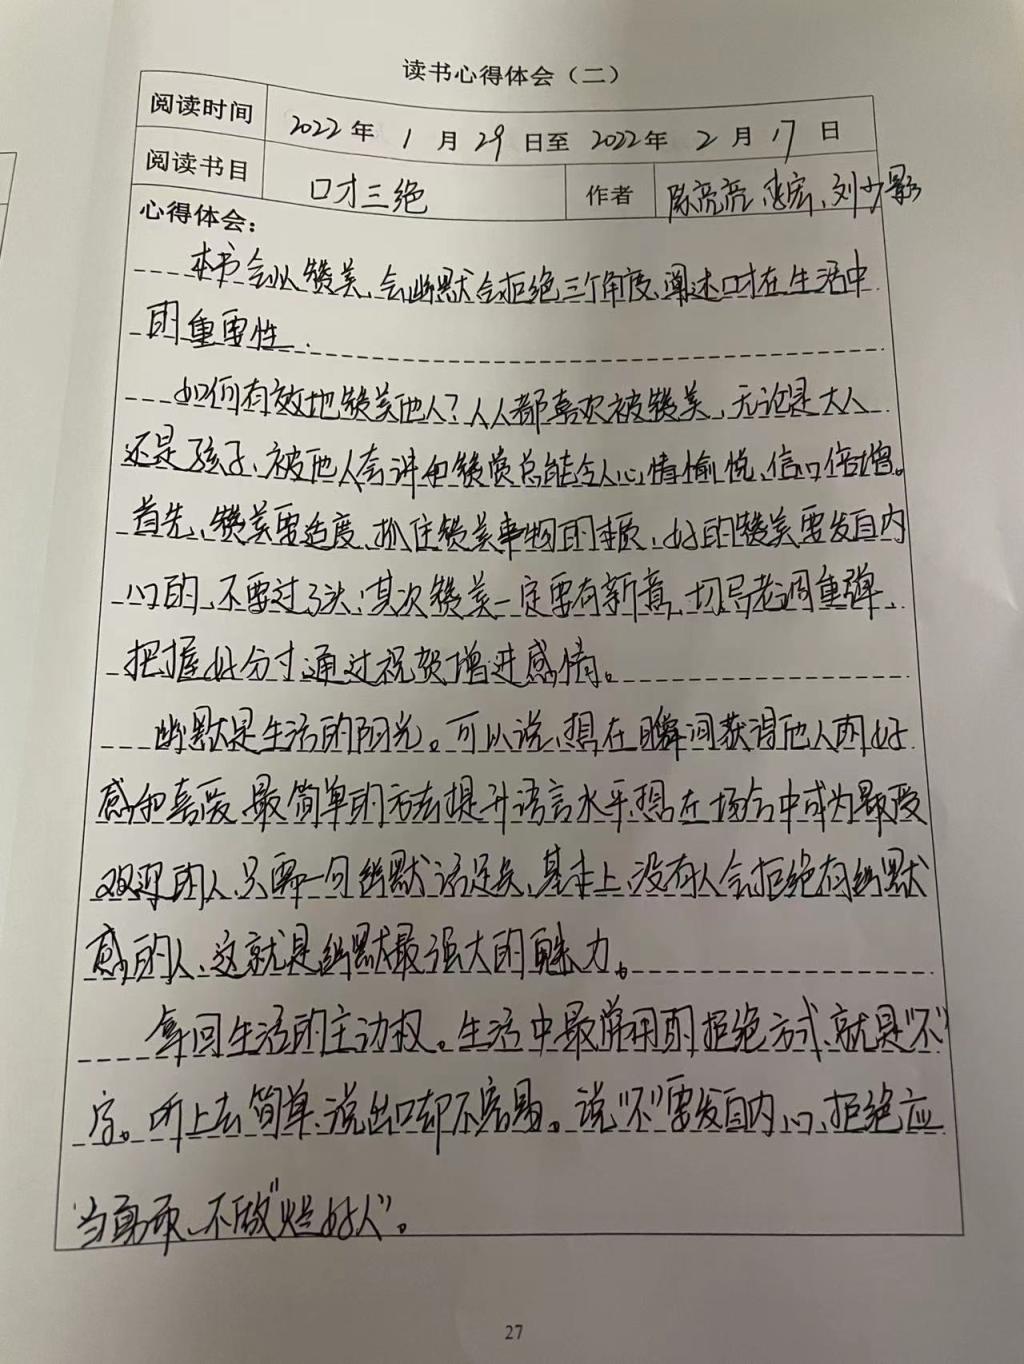 读书心得体会（二）
阅读时间 2022年 1 月 29 日至 2022年 2 月 17 日
阅读书目 口才三绝 作者 陈亮亮、惠宏、刘少影
心得体会：
本书会从赞美、会幽默会拒绝三个角度、阐述口才在生活中
的重要性.
如何有效地赞美他人？人人都喜欢被赞美、无论是大人
还是孩子、被他人夸讲和赞赏总能令人心情愉悦、信心倍增。
首先、赞美要适度、抓住赞美事物的本质、好的赞美要发自内
心的、不要过了头；其次赞美一定要有新意、切忌老调重弹、
把握好分寸通过祝贺增进感情。
幽默是生活的阳光。可以说、想在瞬间获得他人的好
感和喜爱、最简单的方法提升语言水平、想在场合中成为最受
欢迎的人、只需一句幽默话足矣、基本上、没有人会拒绝有幽默
感的人、这就是幽默最强大的魅力。
拿回生活的主动权。生活中最常用的拒绝方式、就是“不”
字。听上去简单、说出口却不容易。说“不”要发自内心、拒绝应
当真师、不做“烂好人”。
27